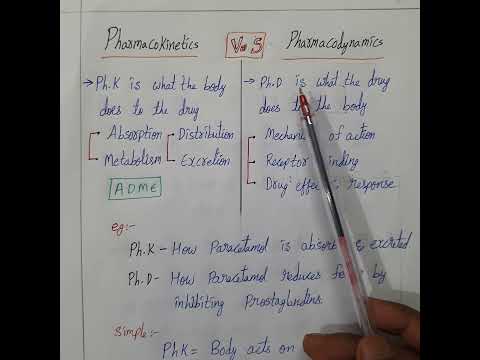 Pharmacokinetics V.S Pharmacodynamics
→ Ph.K is what the body
does to the drug
Absorption Distribution
Metabolism Excretion
ADME
→ Ph.D is what the drug
does to the body
Mechani of action
Receptor inding
Drug effe response
eg:-
Ph.K - How Paracetamol is absorb & excreted
Ph.D - How Paracetamol reduces fe by
inhibiting Prostaglandins.
Simple:-
PhK = Body acts on